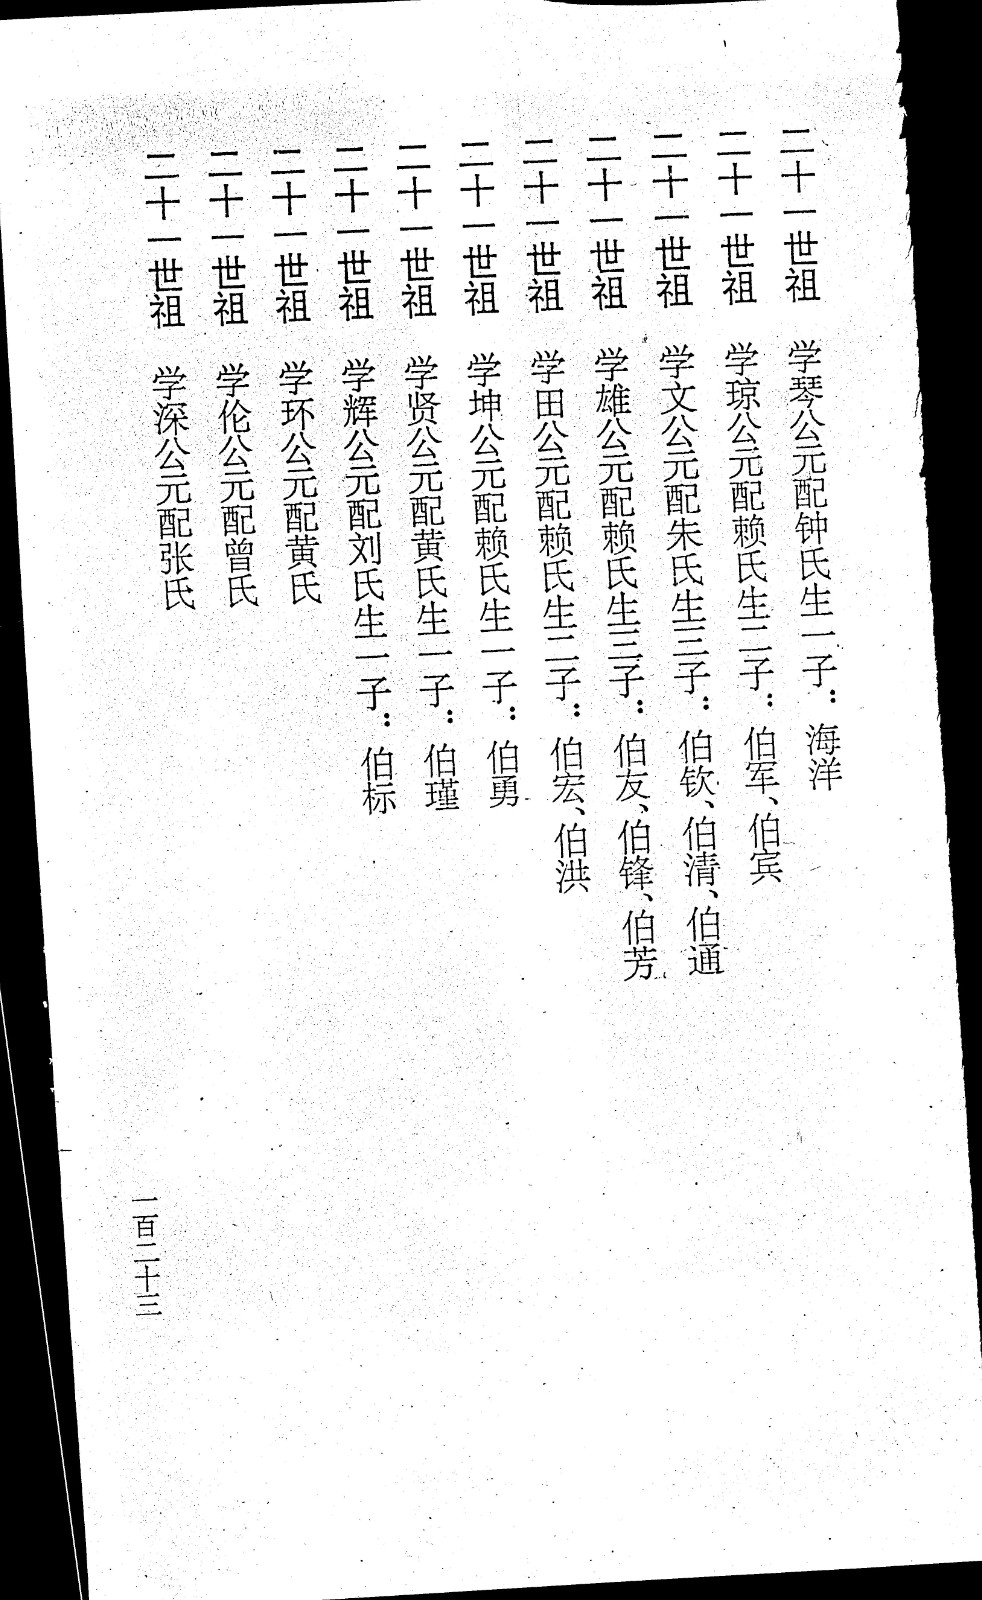 二十一世祖 学琴公元配钟氏生一子：海洋
二十一世祖 学琼公元配赖氏生二子：伯军、伯宾
二十一世祖 学文公元配朱氏生三子：伯钦、伯清、伯通
二十一世祖 学雄公元配赖氏生三子：伯友、伯锋、伯芳
二十一世祖 学田公元配赖氏生二子：伯宏、伯洪
二十一世祖 学坤公元配赖氏生一子：伯勇
二十一世祖 学贤公元配黄氏生一子：伯瑾
二十一世祖 学辉公元配刘氏生一子：伯标
二十一世祖 学环公元配黄氏
二十一世祖 学伦公元配曾氏
二十一世祖 学深公元配张氏
一百二十三